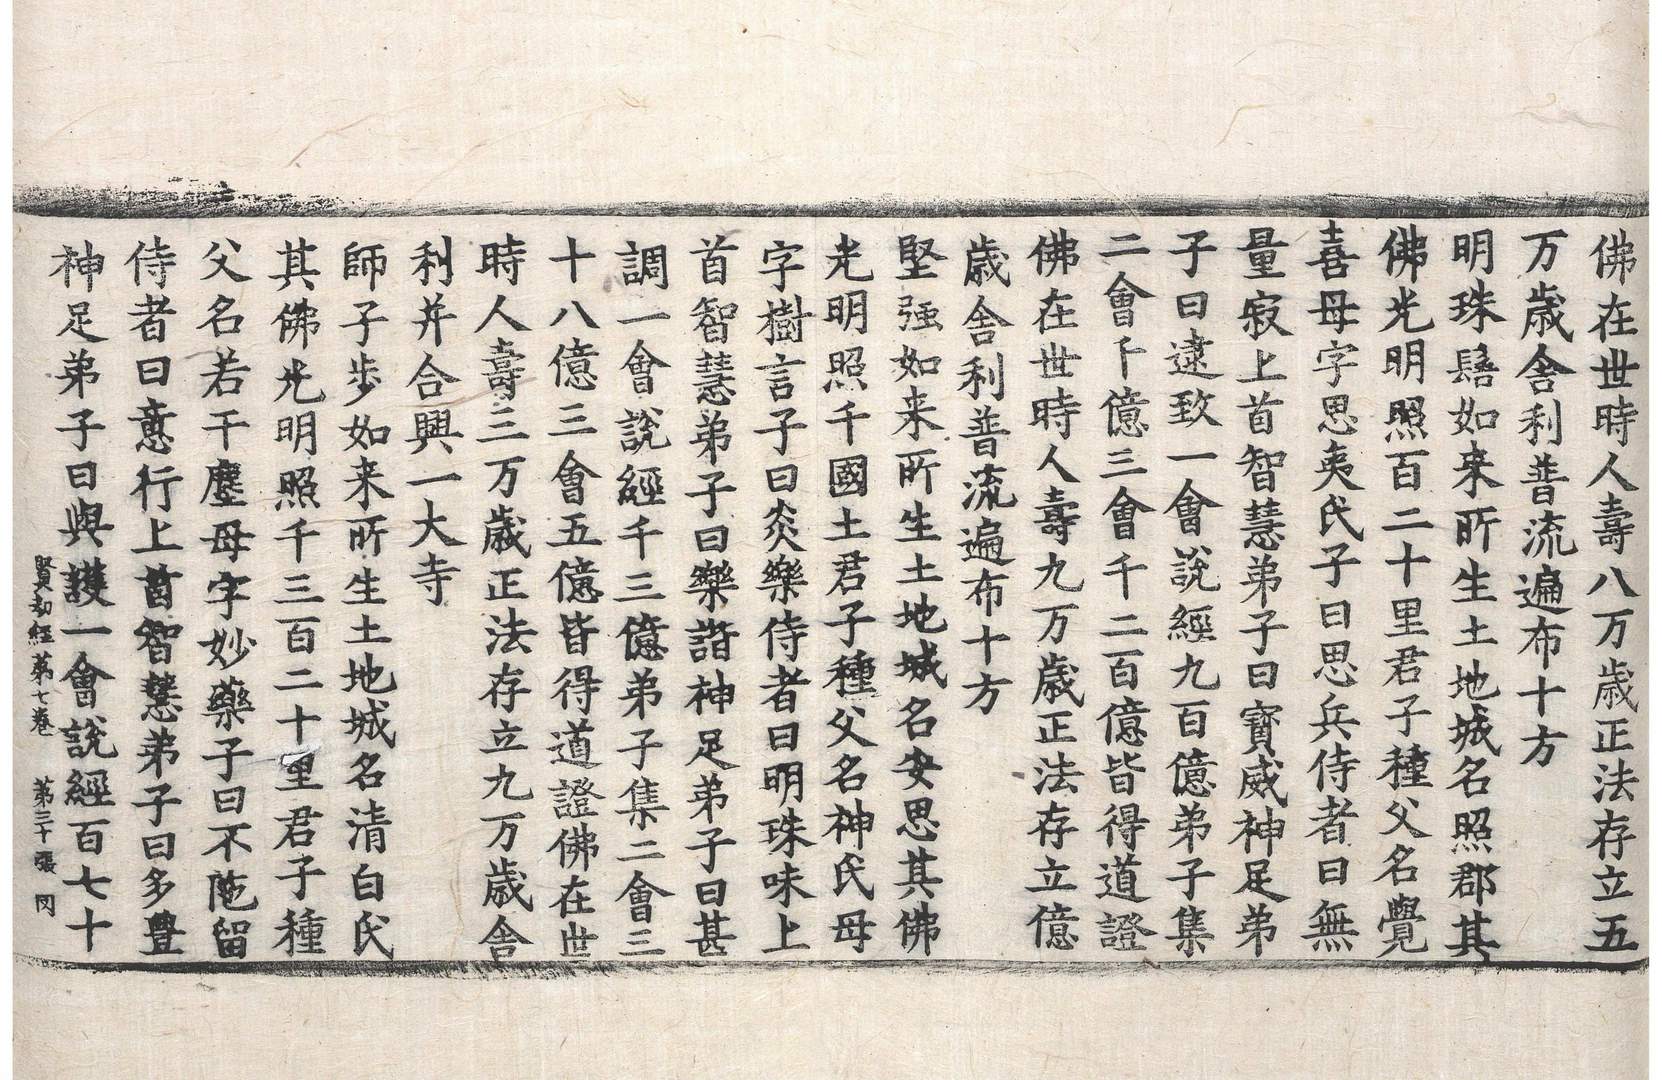 佛在世時人壽八万歲正法存立五
万歲舍利普流遍布十方
明珠髻如来所生土地城名照郡其
佛光明照百二十里君子種父名覺
喜母字思夷氏子曰思兵侍者曰無
量寂上首智慧弟子曰寶威神足弟
子曰逮致一會說經九百億弟子集
二會千億三會千二百億皆得道證
佛在世時人壽九万歲正法存立億
歲舍利普流遍布十方
堅强如来所生土地城名安思其佛
光明照千國土君子種父名神氏母
字樹言子曰炎樂侍者曰明珠味上
首智慧弟子曰樂諧神足弟子曰甚
調一會說經千三億弟子集二會三
十八億三會五億皆得道證佛在世
時人壽三万歲正法存立九万歲舍
利并合興一大寺
師子步如来所生土地城名清白氏
其佛光明照千三百二十里君子種
父名若干麈母字妙藥子曰不陁留
侍者曰意行上首智慧弟子曰多豊
神足弟子曰與護一會說經百七十
賢劫經第七卷 第三十張 冈